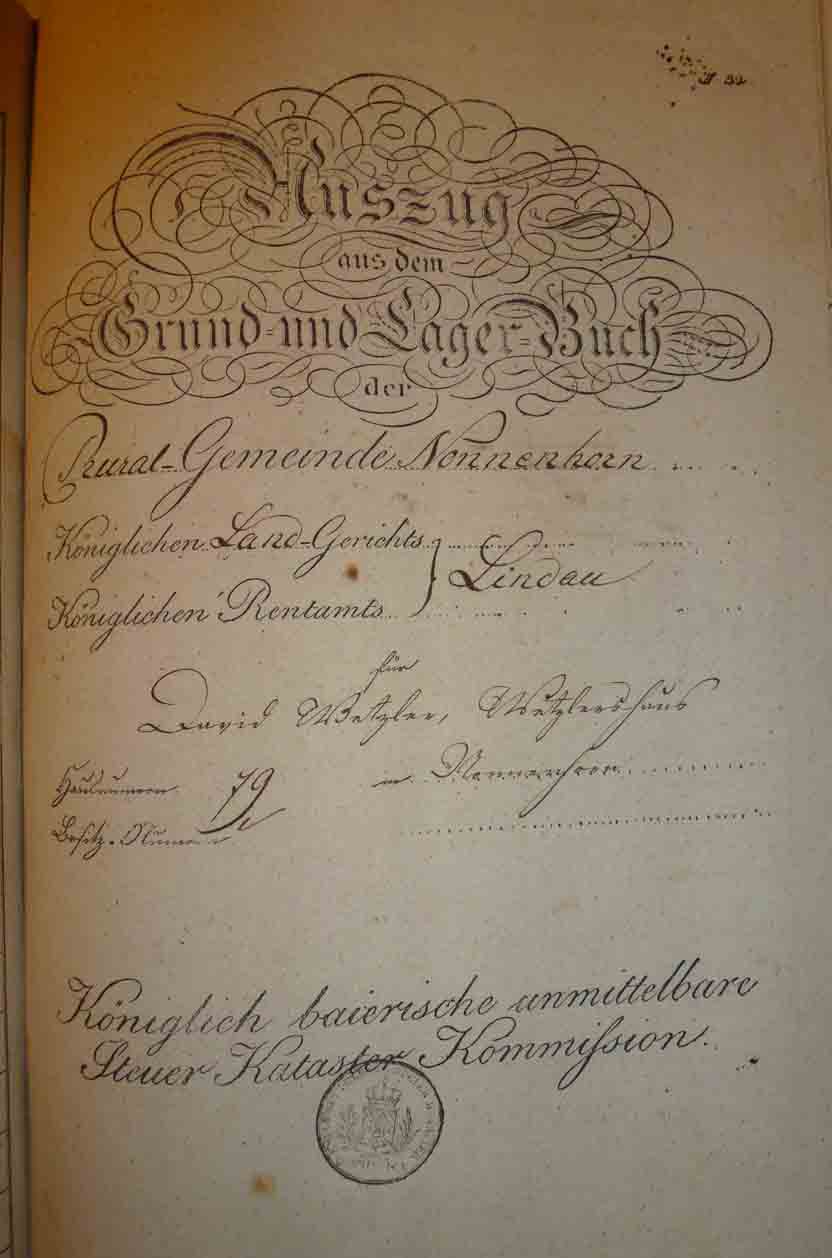 Auszug
aus dem
Grund- und Lager-Buch
der
Rural-Gemeinde Nonnenhorn
Königlichen Land-Gerichts } Lindau
Königlichen Rentamts
für
David Wetzler, Wetzlershaus
Hausnumero 79 in Nonnenhorn
Besitz-Numero
Königlich baierische unmittelbare
Steuer Kataster Kommission.